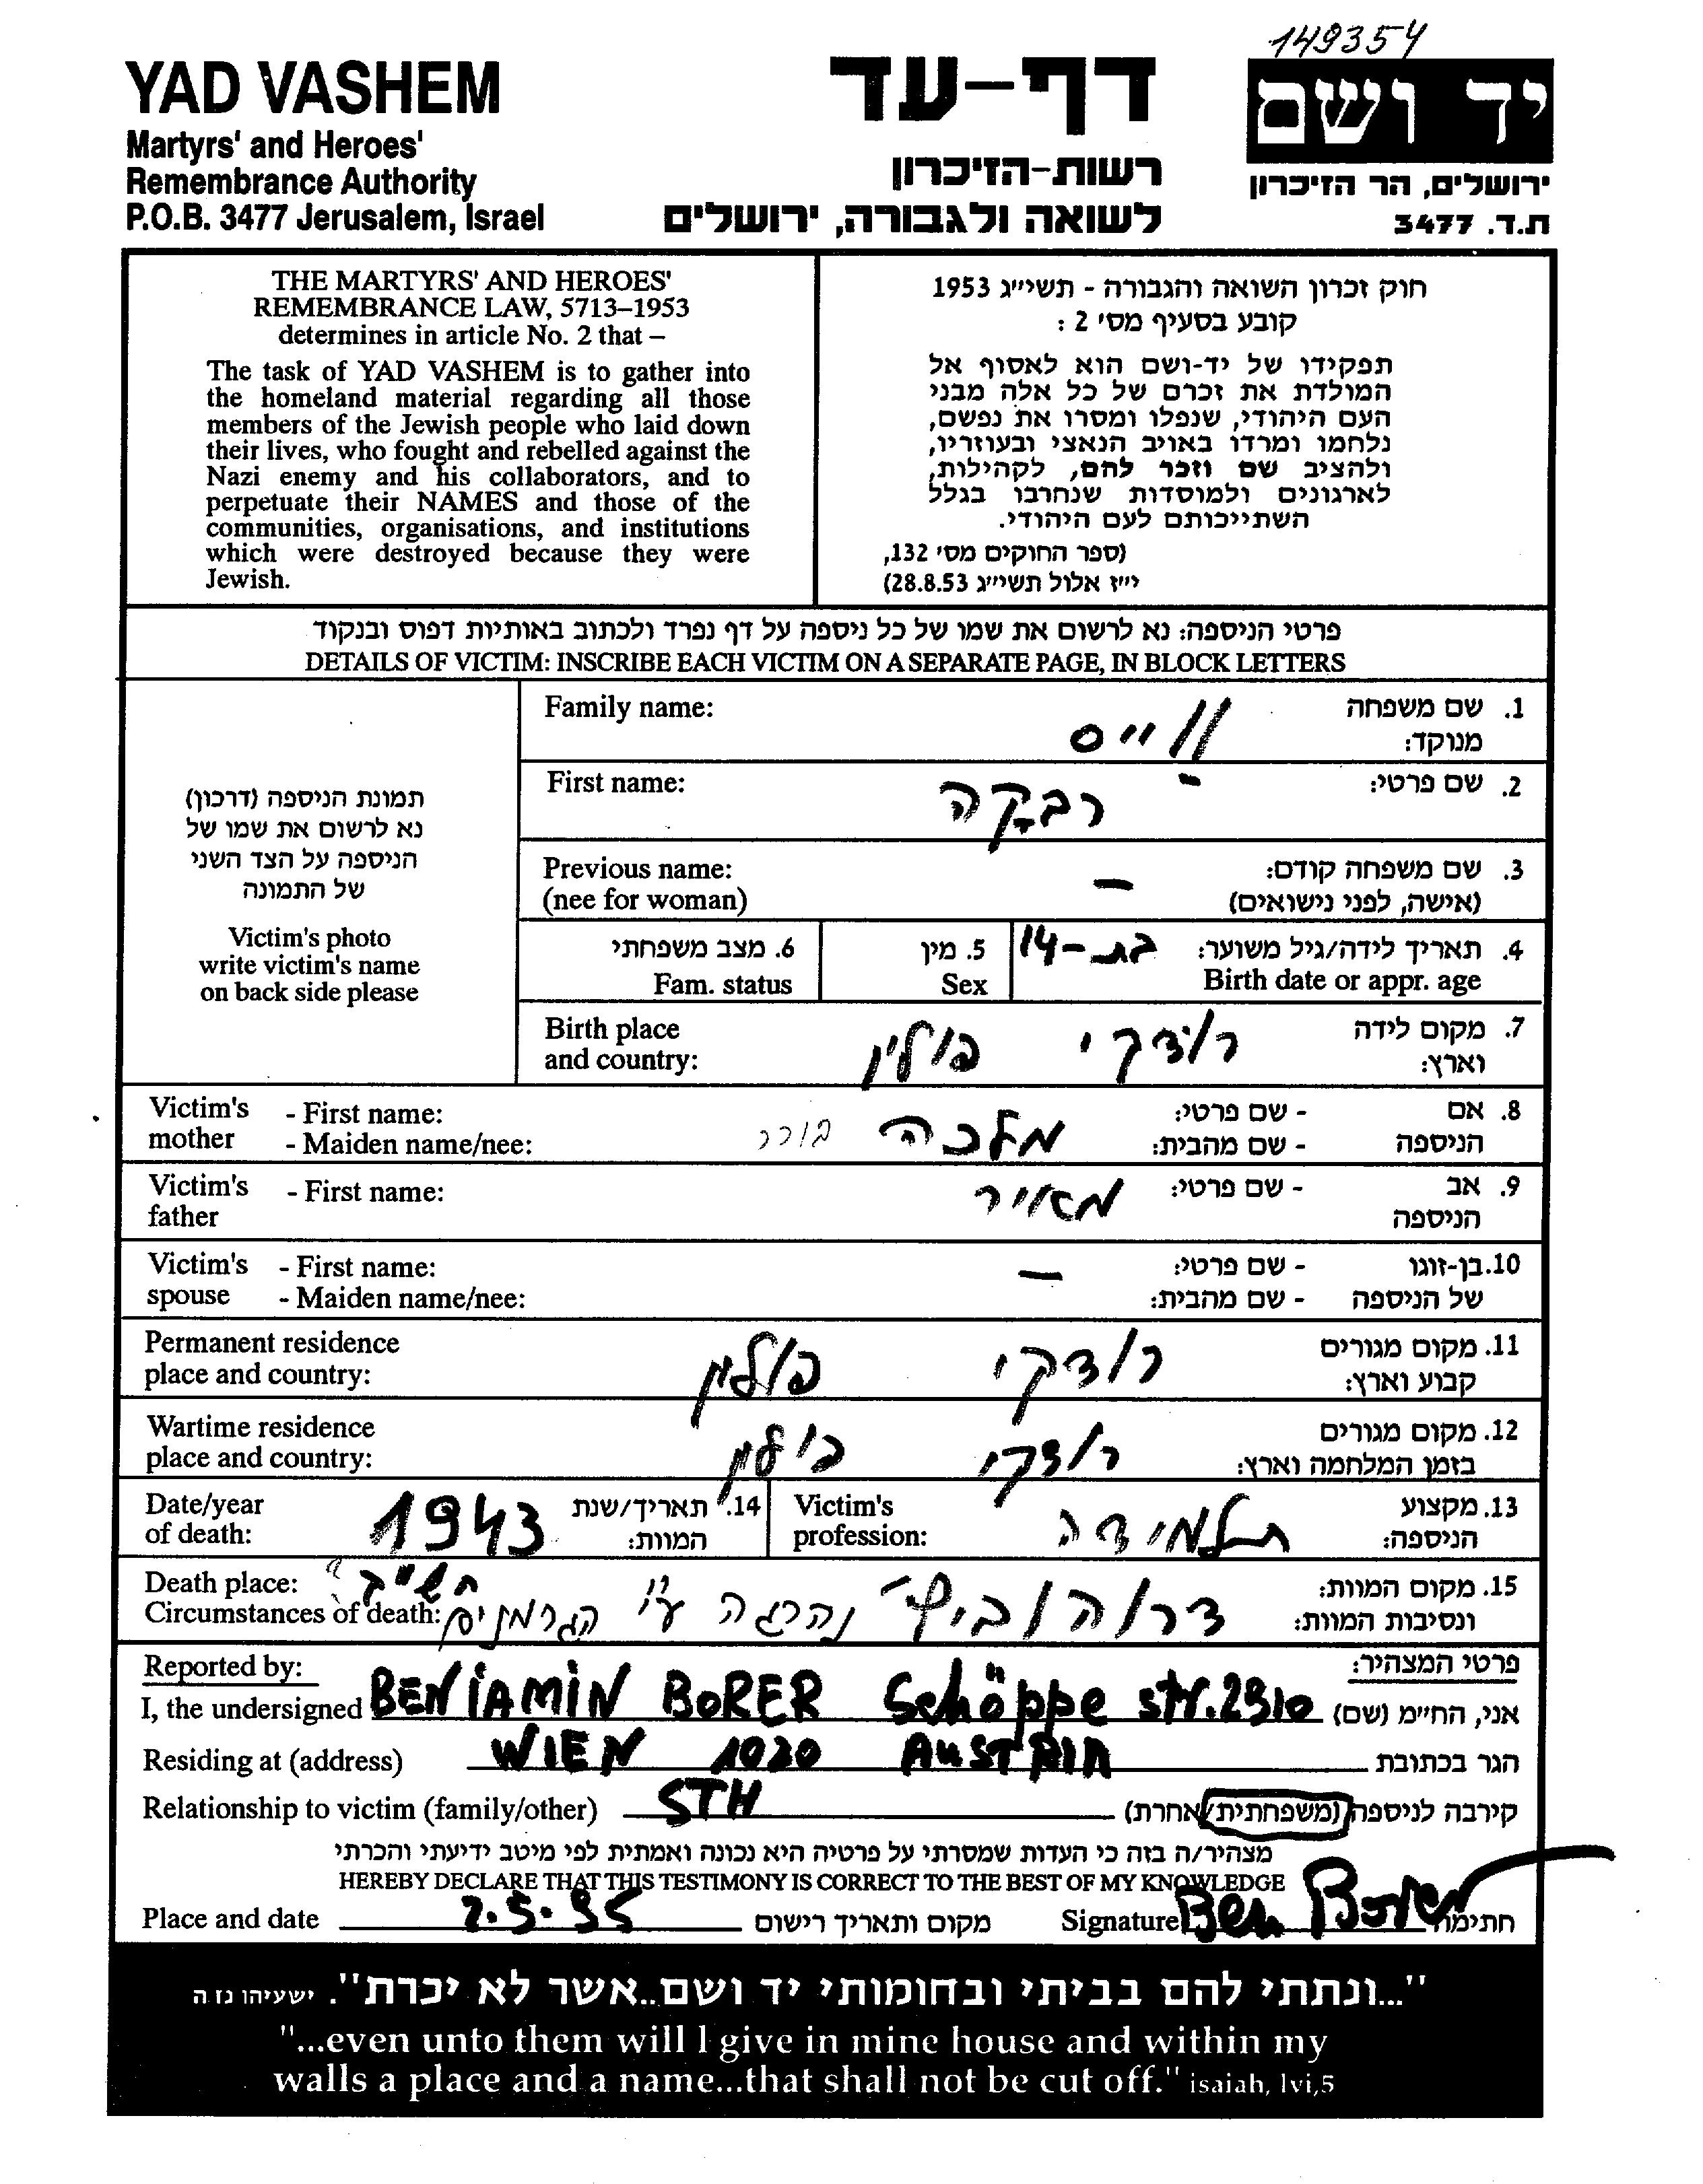 149354
YAD VASHEM
Martyrs' and Heroes'
Remembrance Authority
P.O.B. 3477 Jerusalem, Israel
דף-עד
רשות-הזיכרון
לשואה ולגבורה, ירושלים
יד ושם
ירושלים, הר הזיכרון
ת.ד. 3477
THE MARTYRS' AND HEROES'
REMEMBRANCE LAW, 5713–1953
determines in article No. 2 that –
The task of YAD VASHEM is to gather into
the homeland material regarding all those
members of the Jewish people who laid down
their lives, who fought and rebelled against the
Nazi enemy and his collaborators, and to
perpetuate their NAMES and those of the
communities, organisations, and institutions
which were destroyed because they were
Jewish.
חוק זכרון השואה והגבורה - תשי״ג 1953
קובע בסעיף מס׳ 2 :
תפקידו של יד-ושם הוא לאסוף אל
המולדת את זכרם של כל אלה מבני
העם היהודי, שנפלו ומסרו את נפשם,
נלחמו ומרדו באויב הנאצי ובעוזריו,
ולהציב שם וזכר להם, לקהילות,
לארגונים ולמוסדות שנחרבו בגלל
השתייכותם לעם היהודי.
(ספר החוקים מס׳ 132,
י״ז אלול תשי״ג 28.8.53)
פרטי הניספה: נא לרשום את שמו של כל ניספה על דף נפרד ולכתוב באותיות דפוס ובנקוד
DETAILS OF VICTIM: INSCRIBE EACH VICTIM ON A SEPARATE PAGE, IN BLOCK LETTERS
תמונת הניספה (דרכון)
נא לרשום את שמו של
הניספה על הצד השני
של התמונה
Victim's photo
write victim's name
on back side please
1. שם משפחה
מנוקד:
Family name:
ווייס
2. שם פרטי:
First name:
רבקה
3. שם משפחה קודם:
(אישה, לפני נישואים)
Previous name:
(nee for woman)
–
4. תאריך לידה/גיל משוער:
Birth date or appr. age
בת-14
5. מין
Sex
6. מצב משפחתי
Fam. status
7. מקום לידה
וארץ:
Birth place
and country:
רודקי פולין
8. אם
הניספה
- שם פרטי:
- שם מהבית:
Victim's
mother
- First name:
- Maiden name/nee:
מלכה בורר
9. אב
הניספה
- שם פרטי:
Victim's
father
- First name:
מאיר
10.בן-זוגו
של הניספה
- שם פרטי:
- שם מהבית:
Victim's
spouse
- First name:
- Maiden name/nee:
–
11. מקום מגורים
קבוע וארץ:
Permanent residence
place and country:
רודקי פולין
12. מקום מגורים
בזמן המלחמה וארץ:
Wartime residence
place and country:
רודקי פולין
13. מקצוע
הניספה:
Victim's
profession:
תלמידה
14. תאריך/שנת
המוות:
Date/year
of death:
1943
15. מקום המוות:
ונסיבות המוות:
Death place:
Circumstances of death:
דרוהוביץ׳ נהרגה ע״י הגרמנים
Reported by:
פרטי המצהיר:
I, the undersigned BENiAMiN BORER Schöppe str. אני, החי״מ (שם)
Residing at (address) WIEN 1020 AUSTRIA הגר בכתובת
Relationship to victim (family/other) STH קירבה לניספה (משפחתית/אחרת)
מצהיר/ה בזה כי העדות שמסרתי על פרטיה היא נכונה ואמתית לפי מיטב ידיעתי והכרתי
HEREBY DECLARE THAT THIS TESTIMONY IS CORRECT TO THE BEST OF MY KNOWLEDGE
Place and date 2.5.95 מקום ותאריך רישום Signature Ben Borer חתימה
"...ונתתי להם בביתי ובחומותי יד ושם..אשר לא יכרת". ישעיהו נו ה
"...even unto them will I give in mine house and within my
walls a place and a name...that shall not be cut off." isaiah, lvi,5